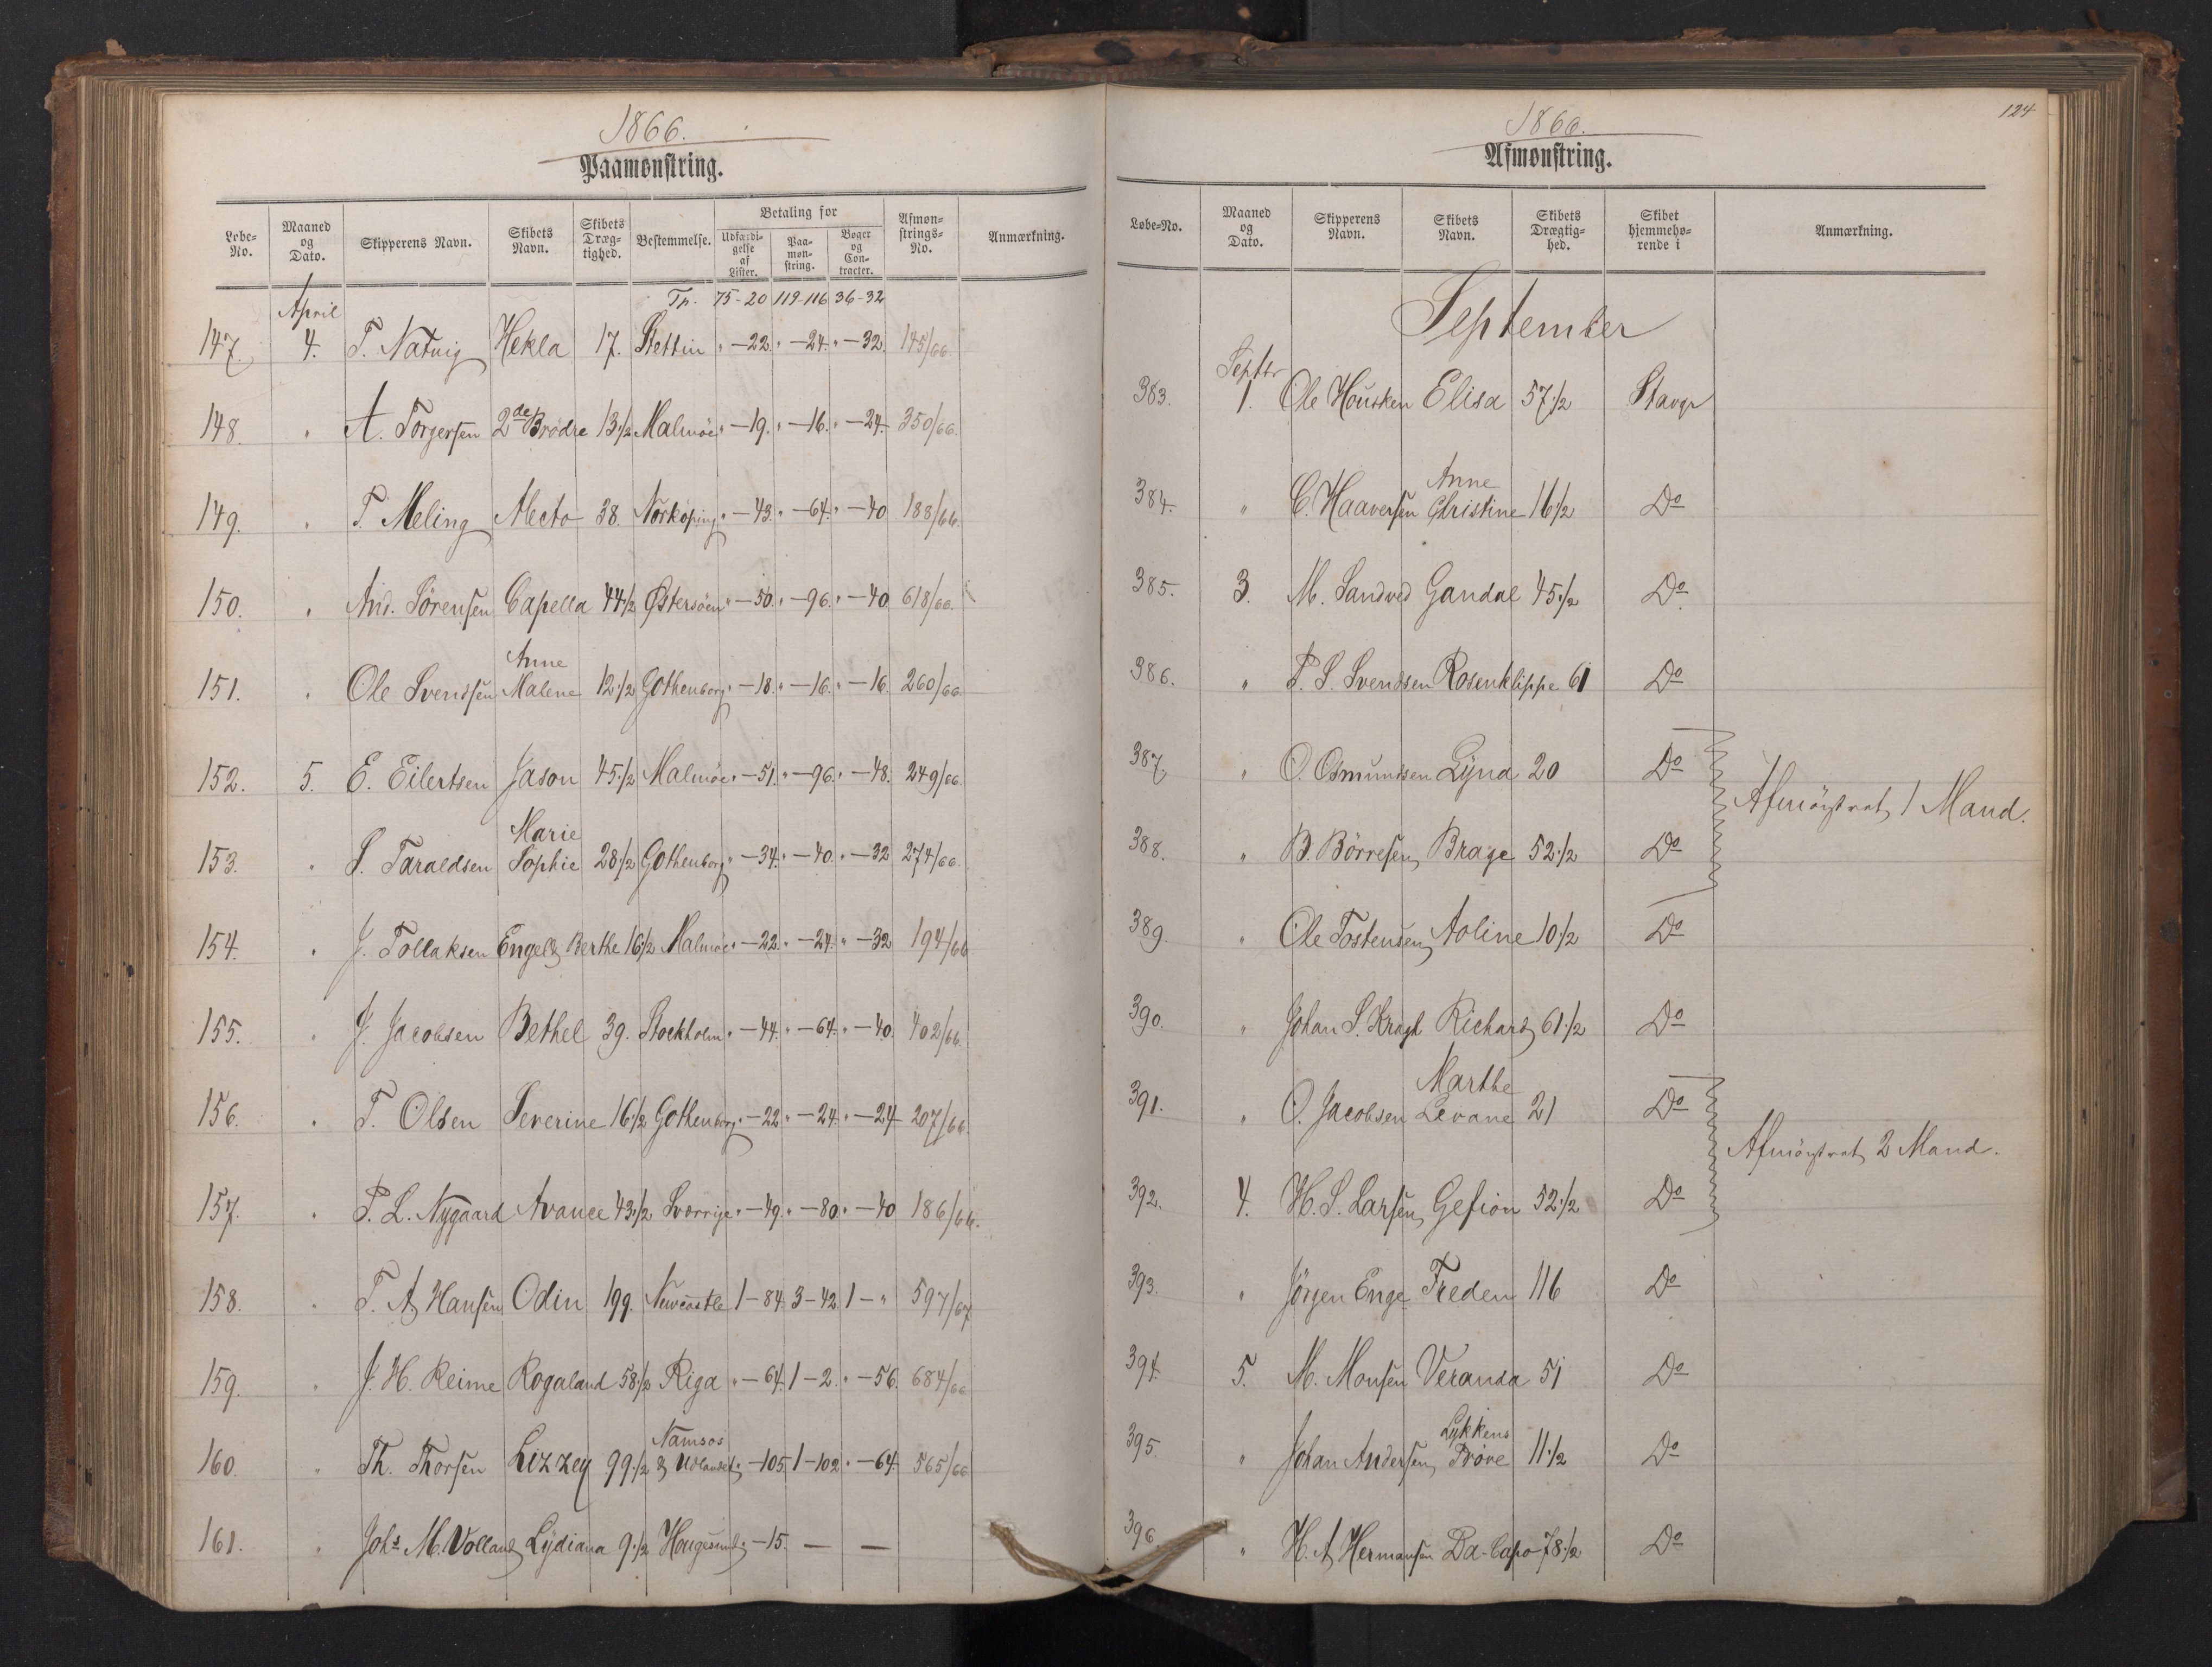 1866.
Paamønstring.
Løbe-No. Maaned og Dato. Skipperens Navn. Skibets Navn. Skibets Dræg-tighed. Bestemmelse. Betaling for Udfærdi-gelse af Lister. Paa-møn-string. Bøger og Con-tracter. Afmøn-strings-No. Anmærkning.
Tp. 75-20 119-116 36-32
April
147. 4. T. Natvig Hekla 17. Stettin " -22. " -24. " -32. 145/66.
148. " A. Torgersen 2de Brødre 13 1/2 Malmöe " -19. " -16. " -24. 350/66.
149. " T. Meling Alecto 38. Norköping " -43. " -64. " -40 188/66.
150. " And. Sörensen Capella 44 1/2 Østersöen " -50. " -96. " -40 618/66.
151. " Ole Svendsen Anne Malene 12 1/2 Gothenborg " -18. " -16. " -16. 260/66.
152. 5. E. Eilertsen Jason 45 1/2 Malmöe " -51. " -96. " -48. 249/66.
153. " S. Taraldsen Marie Sophie 28 1/2 Gothenborg " -34. " -40. " -32 274/66.
154. " J. Tollaksen Engel Berthe 16 1/2 Malmöe " -22. " -24. " -32 194/66
155. " J. Jacobsen Bethel 39. Stockholm " -44. " -64. " -40. 402/66.
156. " T. Olsen Severine 16 1/2 Gothenborg " -22. " -24. " -24 207/66.
157. " P. L. Nygaard Avance 43 1/2 Sverrige " -49. " -80. " -40 186/66.
158. " T. A. Hansen Odin 199. Newcastle 1-84. 3-42. 1-" 597/67
159. " J. H. Reime Rogaland 58 1/2 Riga " -64. 1-2. " -56. 684/66
160. " Th. Thorsen Lizzey 99 1/2 Namsos & Udlandet " -105. 1-102. " -64. 565/66
161. " Johs M. Volland Lydiana 9 1/2 Haugesund " -15. — —
124
1866.
Afmønstring.
Løbe-No. Maaned og Dato. Skipperens Navn. Skibets Navn. Skibets Drægtig-hed. Skibet hjemmehø-rende i Anmærkning.
September
Septbr
383. 1. Ole Housken Elisa 57 1/2 Stavgr
384. " C. Haaversen Anne Christine 16 1/2 Do
385. 3. M. Sandved Gandal 45 1/2 Do
386. " P. S. Svendsen Rosenklippe 61 Do
387. " O. Osmundsen Lyna 20 Do
Afmönstret 1 Mand.
388. " B. Börresen Brage 52 1/2 Do
389. " Ole Tostensen Aoline 10 1/2 Do
390. " Johan S. Kragh Richard 61 1/2 Do
391. " O. Jacobsen Marthe Levane 21 Do
Afmönstret 2 Mand.
392. 4. H. S. Larsen Gefion 52 1/2 Do
393. " Jörgen Enge Freden 116 Do
394. 5. M. Monsen Veranda 51 Do
395. " Johan Andersen Lykkens Pröve 11 1/2 Do
396 " H. A. Hermansen Da-Capo 78 1/2 Do